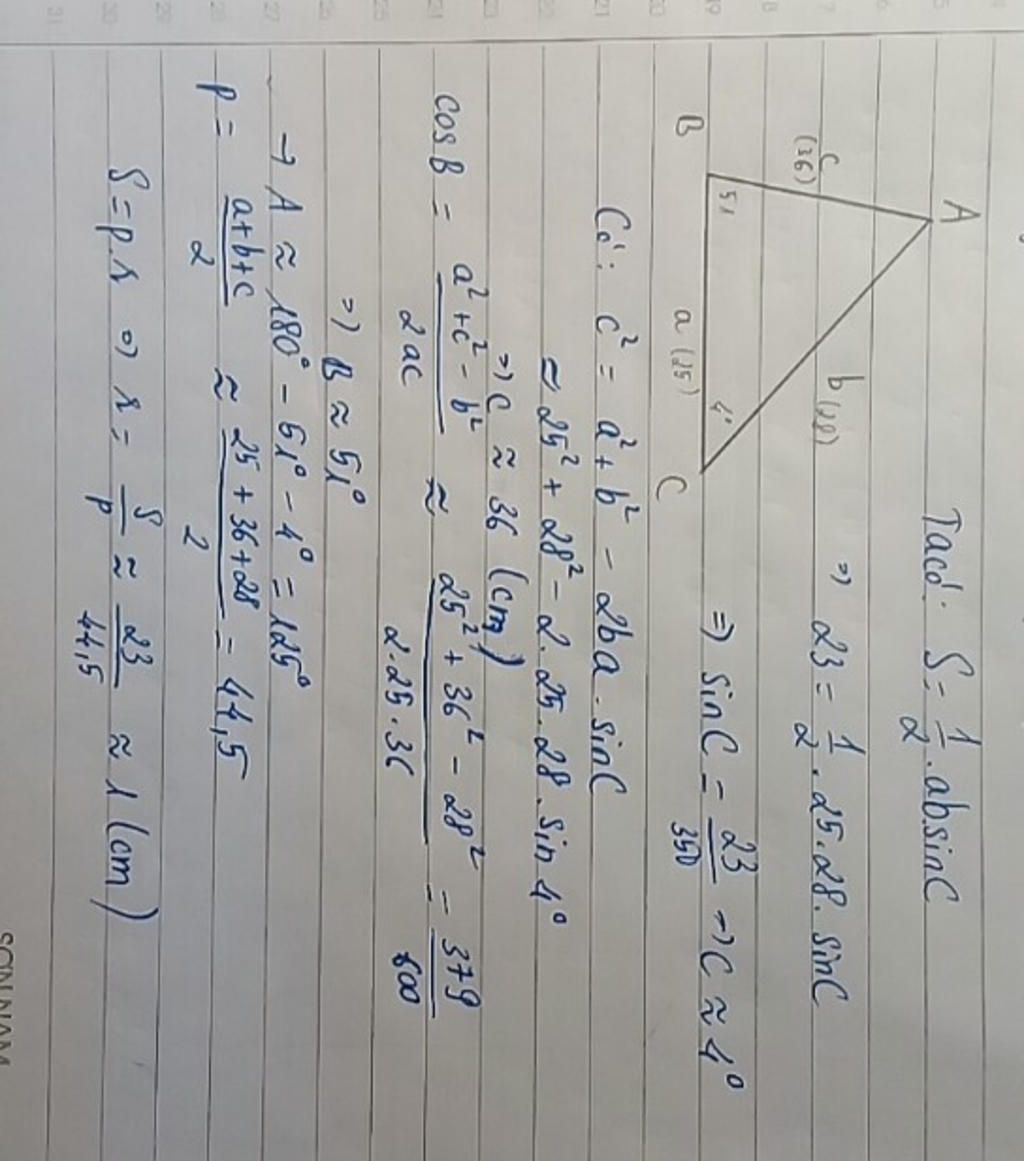 Ta có: S = 1/2 . absinC
⇒ 23 = 1/2 . 25 . 28 . sinC
⇒ sinC = 23/350 → C ≈ 4°
A
c (36)
b (28)
B
51
a (25)
4°
C
Có: c² = a² + b² - 2ba . sinC
≈ 25² + 28² - 2 . 25 . 28 . sin 4°
⇒ C ≈ 36 (cm)
cosB = a² + c² - b² / 2ac ≈ 25² + 36² - 28² / 2 . 25 . 36 = 379 / 600
⇒ B ≈ 51°
→ A ≈ 180° - 51° - 4° = 125°
P = a+b+c / 2 ≈ 25 + 36 + 28 / 2 = 44,5
S = p.r ⇒ r = S/p ≈ 23 / 44,5 ≈ 1 (cm)
SONNAM